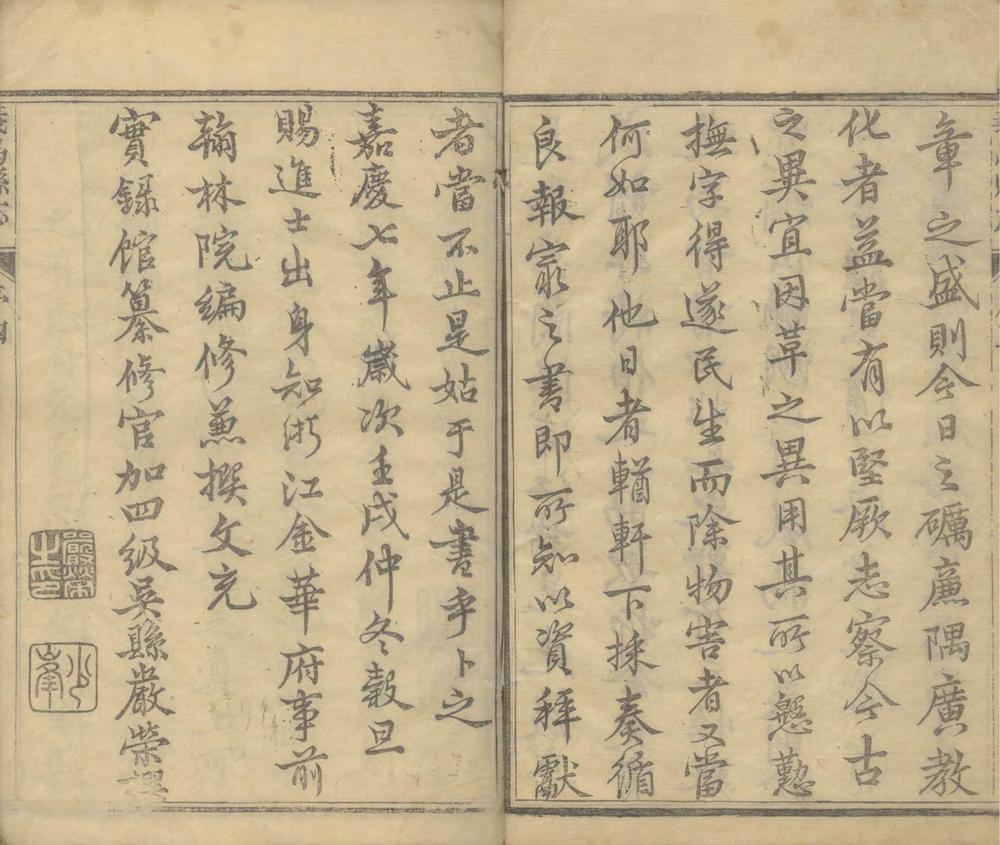 章之盛則今日之礪廉隅廣教
化者益當有以堅厥志察今古
之異宜因革之異用其所以慇懃
撫字得遂民生而除物害者又當
何如耶他日者輶軒下採奏循
良報最之書即所知以資拜獻
者當不止是姑于是書乎卜之
嘉慶七年歲次壬戌仲冬穀旦
賜進士出身知浙江金華府事前
翰林院編修兼撰文充
實錄館纂修官加四級吳縣嚴榮撰
嚴榮之印
少峯